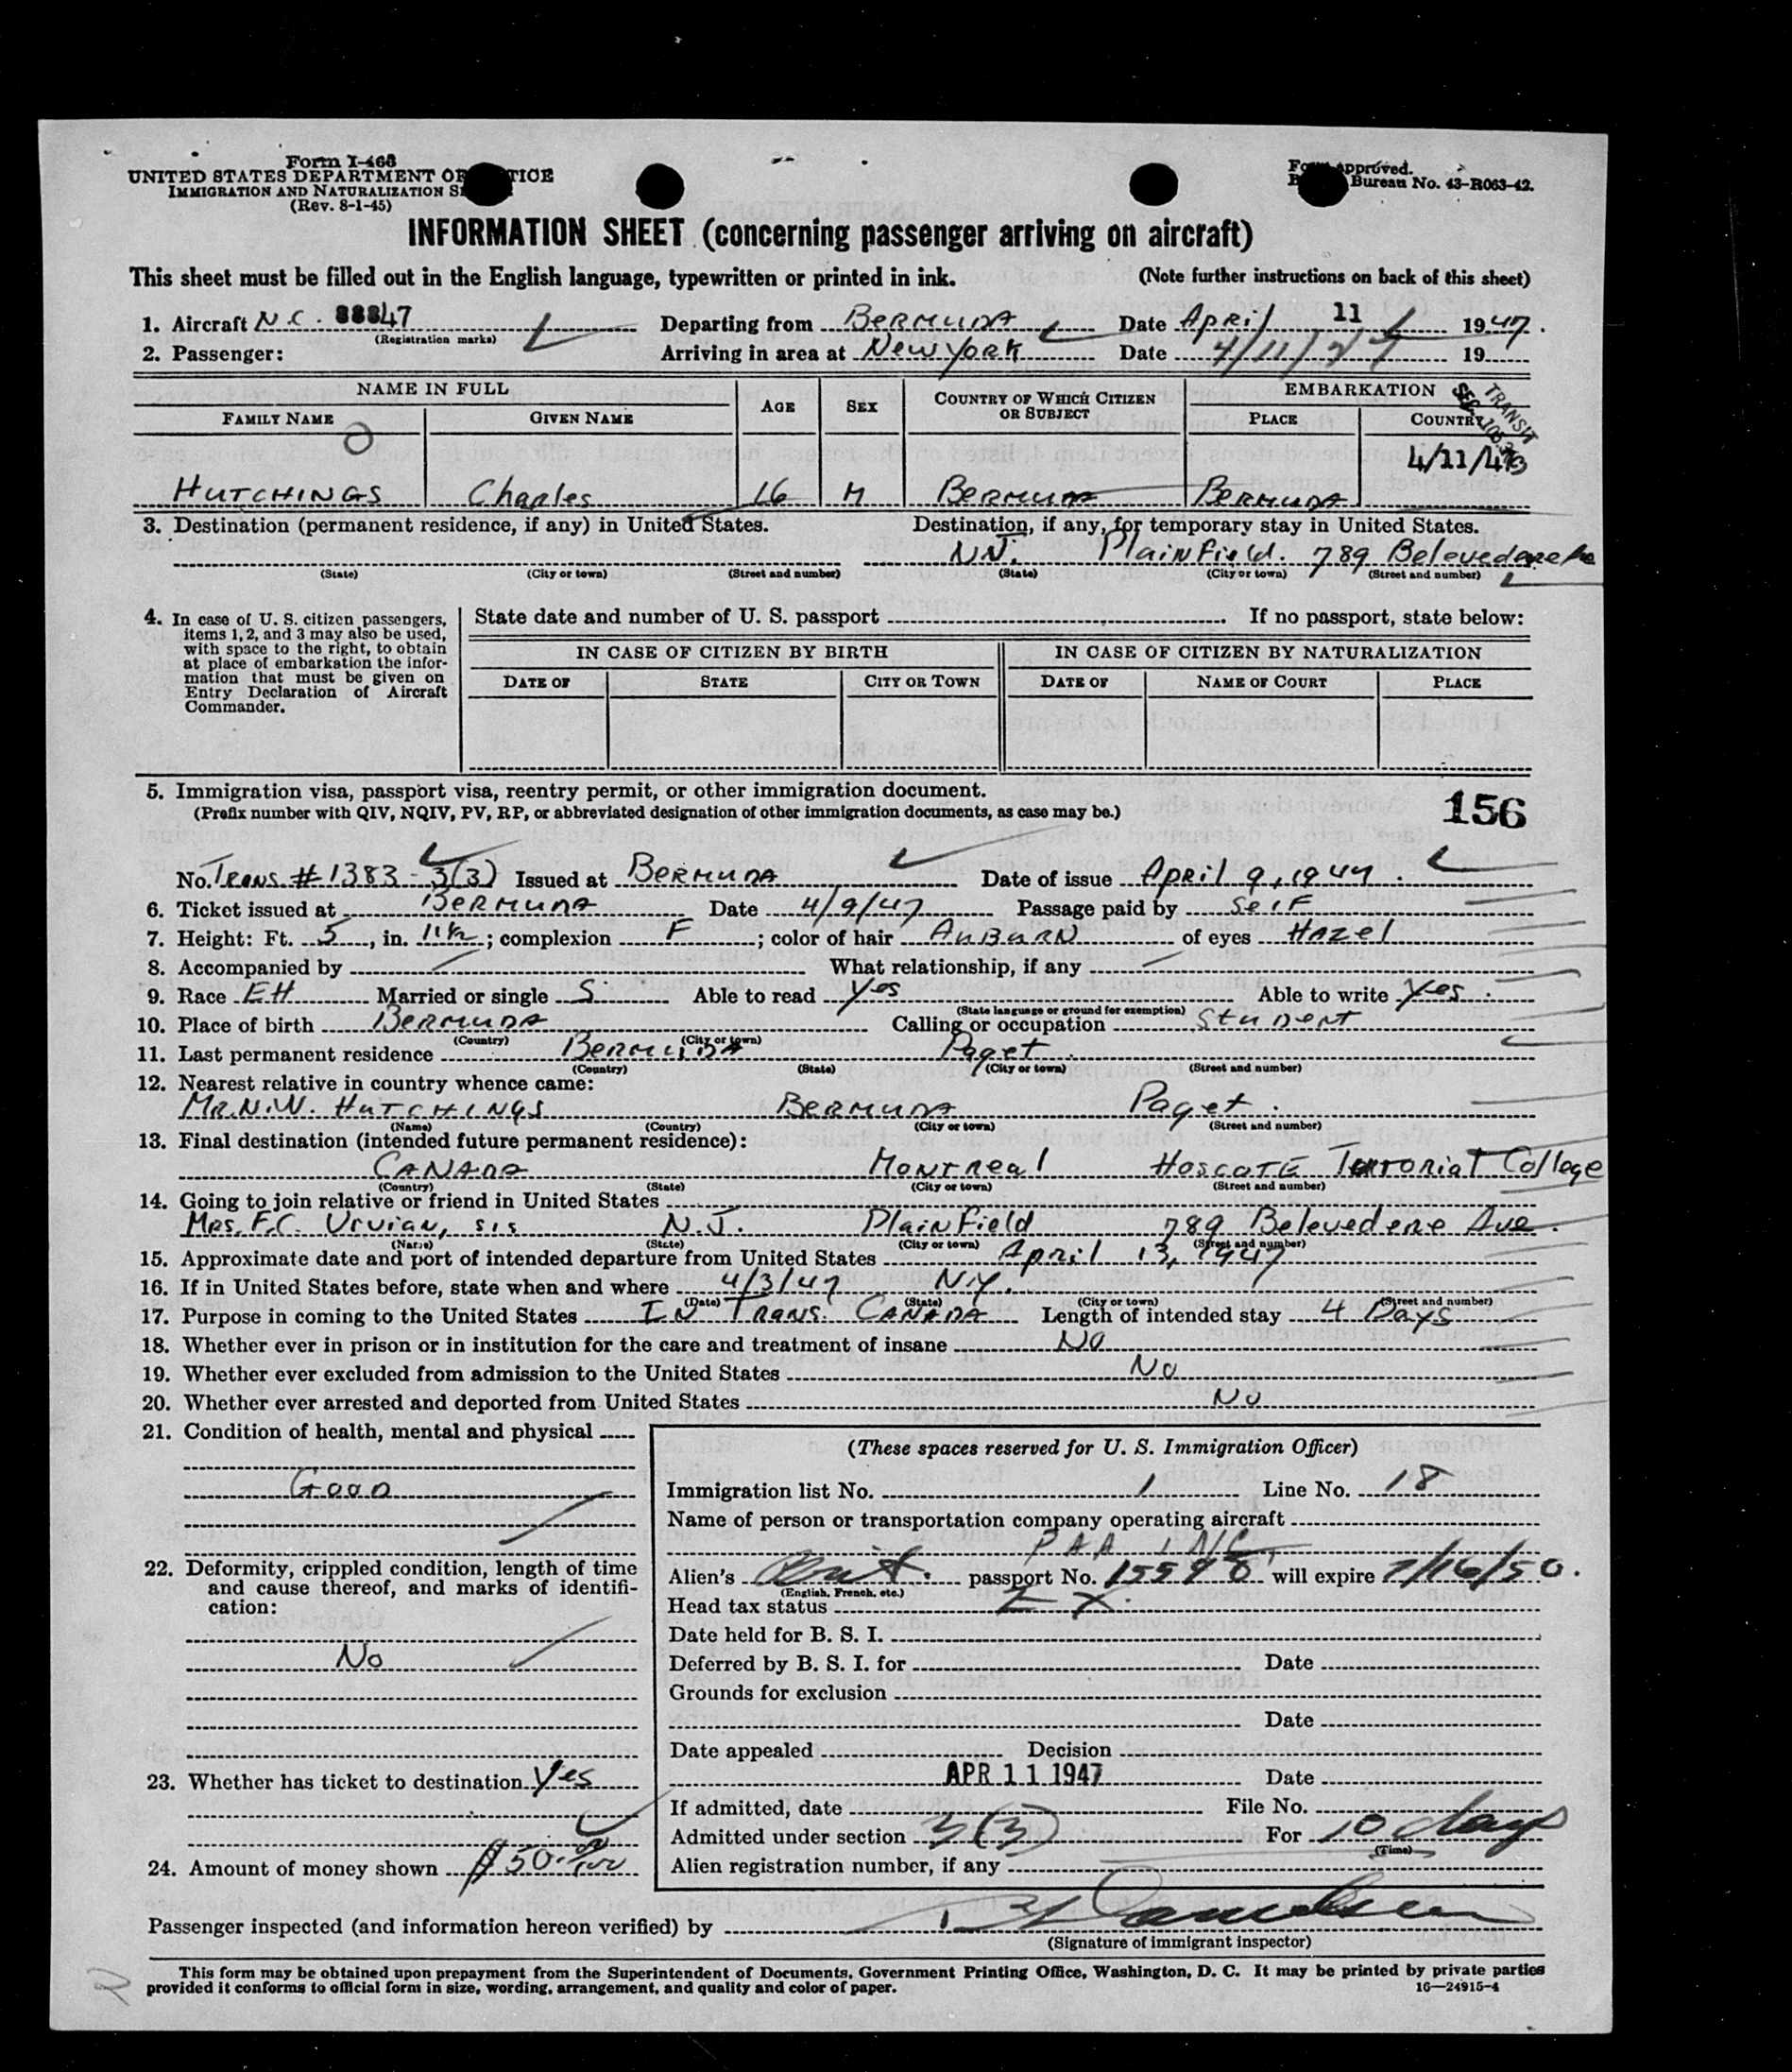 Form I-466
UNITED STATES DEPARTMENT OF TICE
IMMIGRATION AND NATURALIZATION S
(Rev. 8-1-45)
Form approved.
B Bureau No. 43-R063-42.
INFORMATION SHEET (concerning passenger arriving on aircraft)
This sheet must be filled out in the English language, typewritten or printed in ink. (Note further instructions on back of this sheet)
1. Aircraft N.C. 88847 Departing from BERMUDA Date April 11 1947.
(Registration marks)
2. Passenger: Arriving in area at New York Date 4/11/47 19
NAME IN FULL AGE SEX COUNTRY OF WHICH CITIZEN OR SUBJECT EMBARKATION
FAMILY NAME GIVEN NAME PLACE COUNTRY
TRANSIT
4/11/47
HUTCHINGS Charles 16 M BERMUDA BERMUDA
3. Destination (permanent residence, if any) in United States. Destination, if any, for temporary stay in United States.
N.J. Plainfield. 789 Belevedere Ave
(State) (City or town) (Street and number) (State) (City or town) (Street and number)
4. In case of U. S. citizen passengers, items 1, 2, and 3 may also be used, with space to the right, to obtain at place of embarkation the information that must be given on Entry Declaration of Aircraft Commander.
State date and number of U. S. passport If no passport, state below:
IN CASE OF CITIZEN BY BIRTH IN CASE OF CITIZEN BY NATURALIZATION
DATE OF STATE CITY OR TOWN DATE OF NAME OF COURT PLACE
5. Immigration visa, passport visa, reentry permit, or other immigration document.
(Prefix number with QIV, NQIV, PV, RP, or abbreviated designation of other immigration documents, as case may be.)
156
No. Trans #1383-3(3) Issued at BERMUDA Date of issue April 9, 1947.
6. Ticket issued at BERMUDA Date 4/9/47 Passage paid by Self
7. Height: Ft. 5, in. 11½; complexion F; color of hair AUBURN of eyes Hazel
8. Accompanied by What relationship, if any
9. Race EH Married or single S. Able to read Yes Able to write Yes.
(State language or ground for exemption)
10. Place of birth BERMUDA Calling or occupation Student
(Country) (City or town)
11. Last permanent residence BERMUDA Paget.
(Country) (State) (City or town) (Street and number)
12. Nearest relative in country whence came:
MR. N.W. HUTCHINGS BERMUDA Paget.
(Name) (Country) (City or town) (Street and number)
13. Final destination (intended future permanent residence):
CANADA Montreal College
(Country) (State) (City or town) (Street and number)
14. Going to join relative or friend in United States
Mrs. F.C. sis N.J. Plainfield 789 Belevedere Ave.
(Name) (State) (City or town) (Street and number)
15. Approximate date and port of intended departure from United States April 13, 1947
16. If in United States before, state when and where 4/3/47 N.Y.
(Date) (State) (City or town) (Street and number)
17. Purpose in coming to the United States IN Trans. CANADA Length of intended stay 4 Days
18. Whether ever in prison or in institution for the care and treatment of insane No
19. Whether ever excluded from admission to the United States No
20. Whether ever arrested and deported from United States No
21. Condition of health, mental and physical
Good
22. Deformity, crippled condition, length of time and cause thereof, and marks of identification:
No
23. Whether has ticket to destination Yes
24. Amount of money shown $50.00/100
(These spaces reserved for U. S. Immigration Officer)
Immigration list No. 1 Line No. 18
Name of person or transportation company operating aircraft
PAA INC
Alien's Brit. passport No. 15598 will expire 7/16/50.
(English, French, etc.)
Head tax status EX.
Date held for B. S. I.
Deferred by B. S. I. for Date
Grounds for exclusion
Date
Date appealed Decision
APR 11 1947 Date
If admitted, date File No.
Admitted under section 3(3) For 10 days
(Time)
Alien registration number, if any
Passenger inspected (and information hereon verified) by
(Signature of immigrant inspector)
This form may be obtained upon prepayment from the Superintendent of Documents, Government Printing Office, Washington, D. C. It may be printed by private parties
provided it conforms to official form in size, wording, arrangement, and quality and color of paper. 16—24915-4